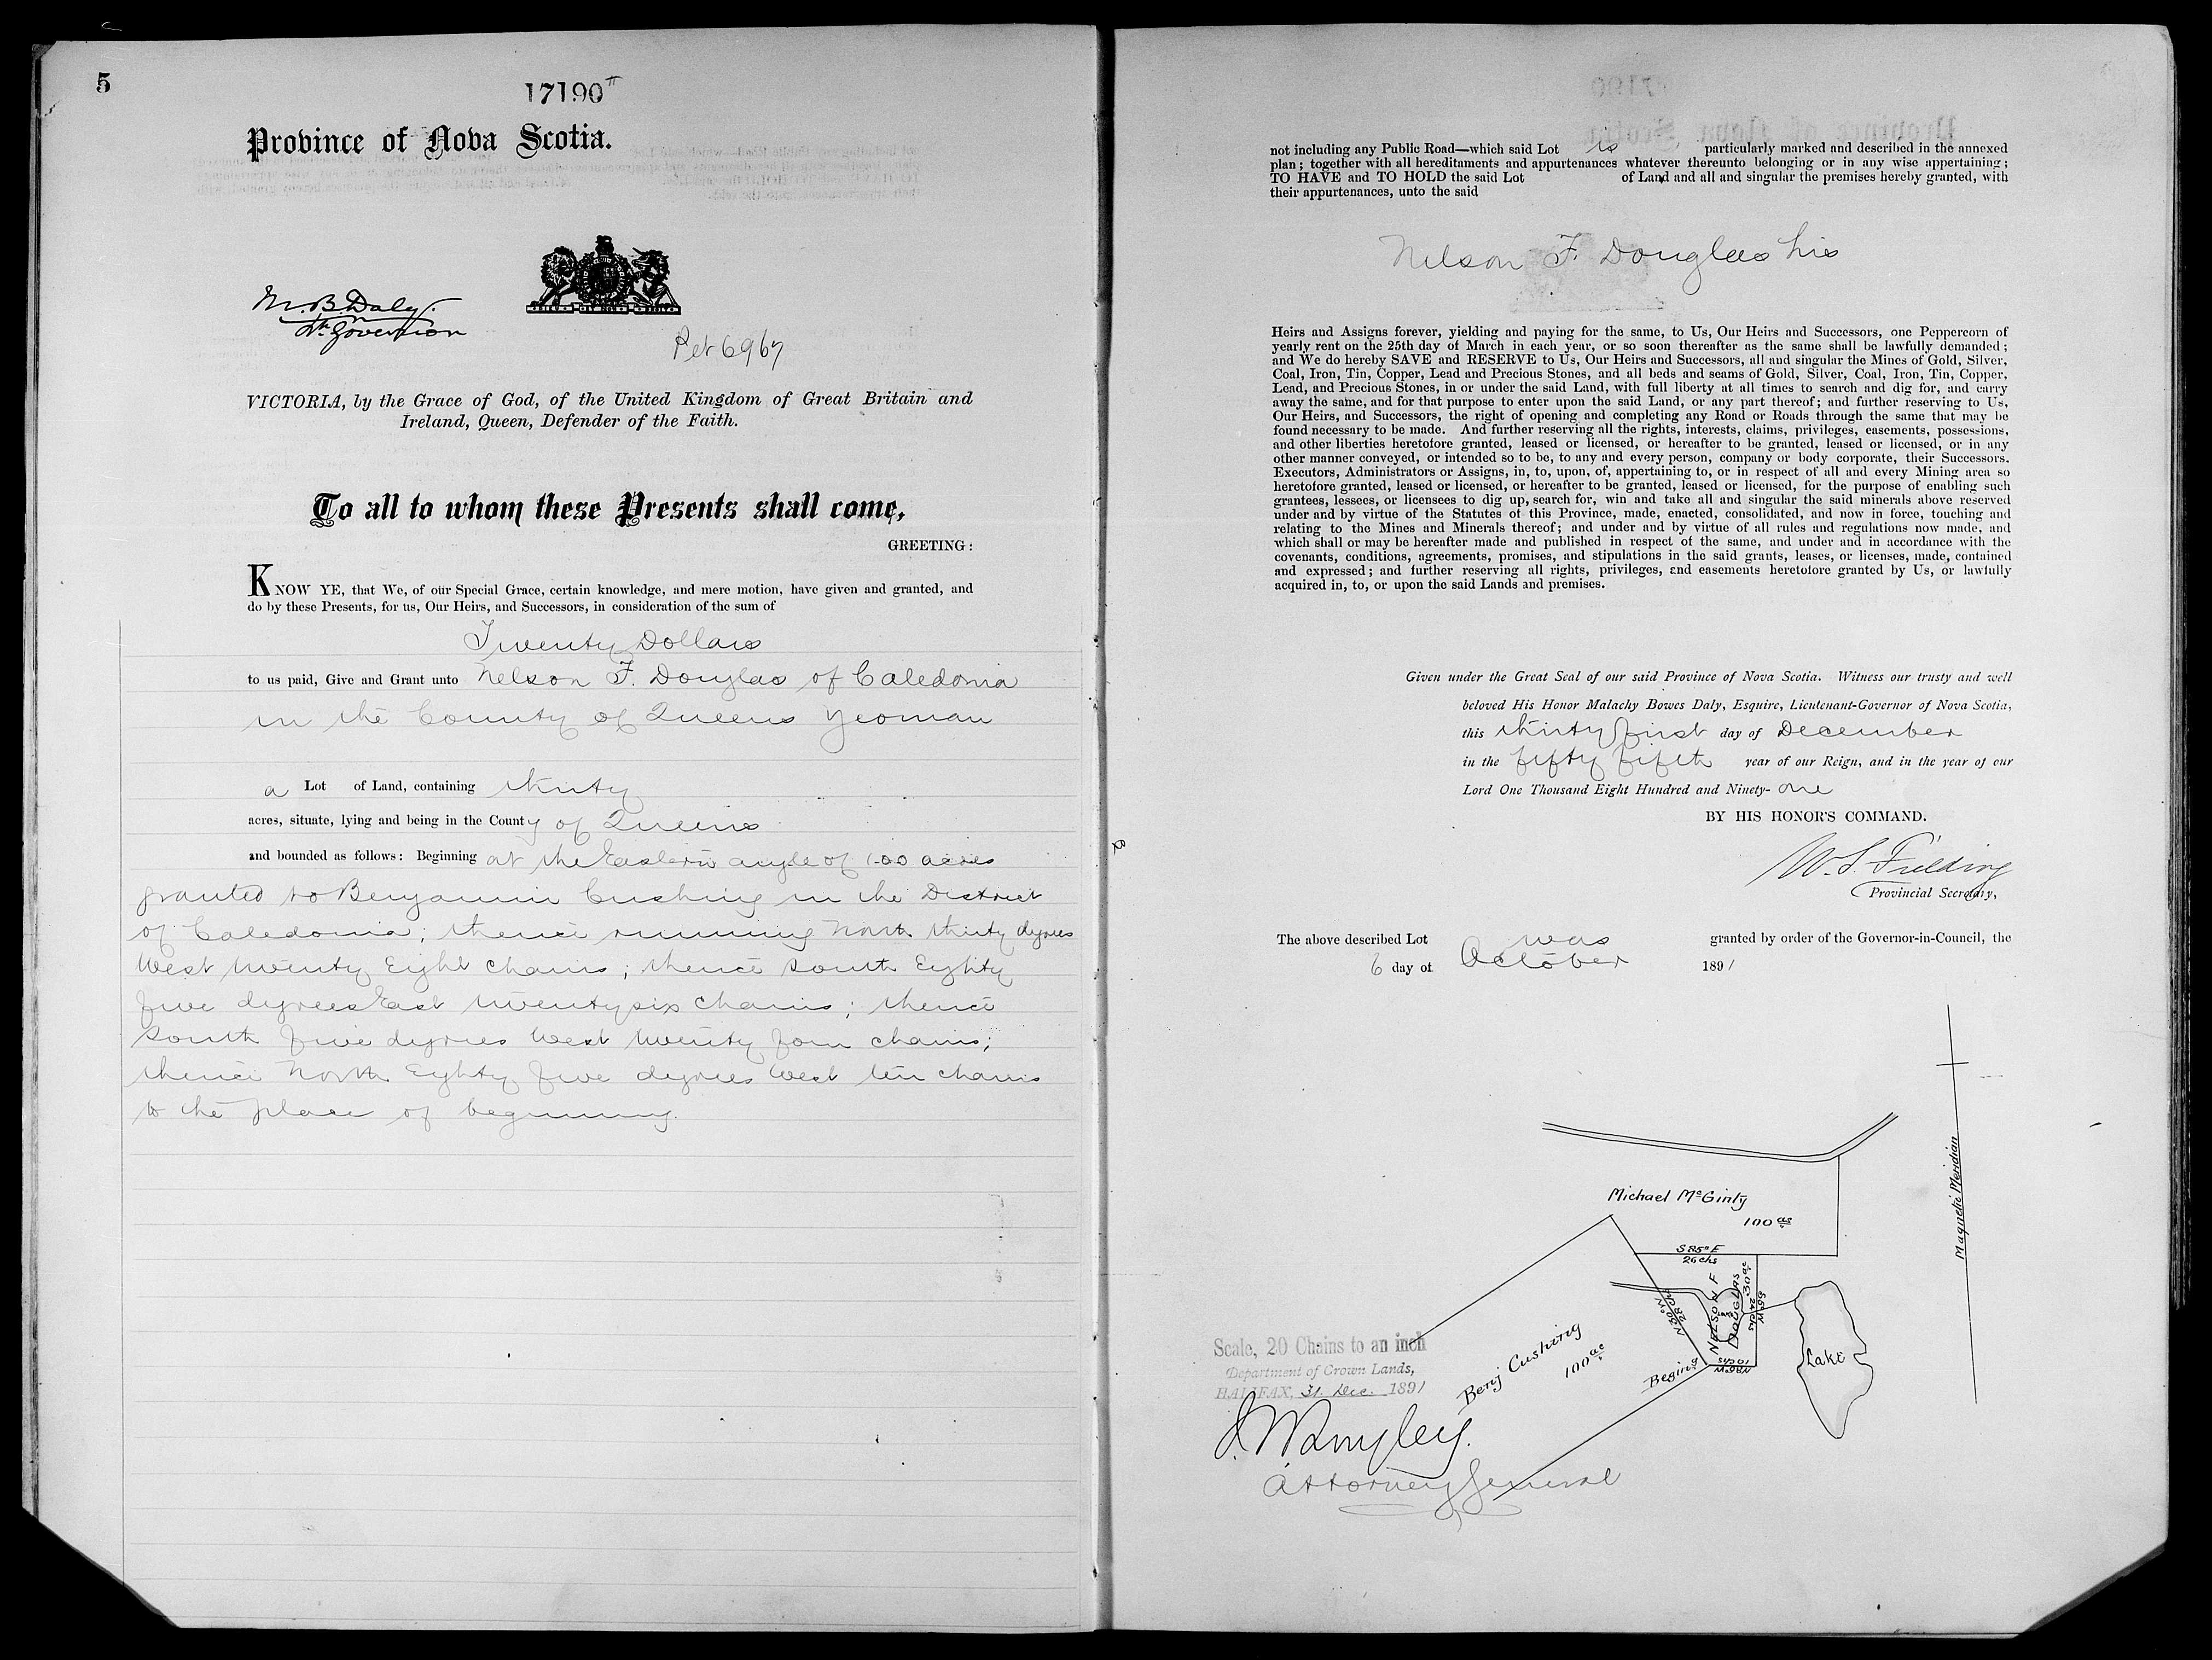 5
17190
Province of Nova Scotia.
M. B. Daly.
Lt. Governor
Pet 6967
VICTORIA, by the Grace of God, of the United Kingdom of Great Britain and
Ireland, Queen, Defender of the Faith.
To all to whom these Presents shall come,
GREETING:
KNOW YE, that We, of our Special Grace, certain knowledge, and mere motion, have given and granted, and
do by these Presents, for us, Our Heirs, and Successors, in consideration of the sum of
Twenty Dollars
to us paid, Give and Grant unto Nelson F. Douglas of Caledonia
in the County of Queens Yeoman
a Lot of Land, containing thirty
acres, situate, lying and being in the County of Queens
and bounded as follows: Beginning at the Eastern angle of 100 acres
granted to Benjamin Cushing in the District
of Caledonia; thence running North thirty degrees
West twenty Eight chains; thence South Eighty
five degrees East twenty six chains; thence
South five degrees West twenty four chains;
thence North Eighty five degrees West ten chains
to the place of beginning.
not including any Public Road—which said Lot is particularly marked and described in the annexed
plan; together with all hereditaments and appurtenances whatever thereunto belonging or in any wise appertaining;
TO HAVE and TO HOLD the said Lot of Land and all and singular the premises hereby granted, with
their appurtenances, unto the said
Nelson F. Douglas his
Heirs and Assigns forever, yielding and paying for the same, to Us, Our Heirs and Successors, one Peppercorn of
yearly rent on the 25th day of March in each year, or so soon thereafter as the same shall be lawfully demanded;
and We do hereby SAVE and RESERVE to Us, Our Heirs and Successors, all and singular the Mines of Gold, Silver,
Coal, Iron, Tin, Copper, Lead and Precious Stones, and all beds and seams of Gold, Silver, Coal, Iron, Tin, Copper,
Lead, and Precious Stones, in or under the said Land, with full liberty at all times to search and dig for, and carry
away the same, and for that purpose to enter upon the said Land, or any part thereof; and further reserving to Us,
Our Heirs, and Successors, the right of opening and completing any Road or Roads through the same that may be
found necessary to be made. And further reserving all the rights, interests, claims, privileges, easements, possessions,
and other liberties heretofore granted, leased or licensed, or hereafter to be granted, leased or licensed, or in any
other manner conveyed, or intended so to be, to any and every person, company or body corporate, their Successors.
Executors, Administrators or Assigns, in, to, upon, of, appertaining to, or in respect of all and every Mining area so
heretofore granted, leased or licensed, or hereafter to be granted, leased or licensed, for the purpose of enabling such
grantees, lessees, or licensees to dig up, search for, win and take all and singular the said minerals above reserved
under and by virtue of the Statutes of this Province, made, enacted, consolidated, and now in force, touching and
relating to the Mines and Minerals thereof; and under and by virtue of all rules and regulations now made, and
which shall or may be hereafter made and published in respect of the same, and under and in accordance with the
covenants, conditions, agreements, promises, and stipulations in the said grants, leases, or licenses, made, contained
and expressed; and further reserving all rights, privileges, and easements heretofore granted by Us, or lawfully
acquired in, to, or upon the said Lands and premises.
Given under the Great Seal of our said Province of Nova Scotia. Witness our trusty and well
beloved His Honor Malachy Bowes Daly, Esquire, Lieutenant-Governor of Nova Scotia,
this thirty first day of December
in the fifty fifth year of our Reign, and in the year of our
Lord One Thousand Eight Hundred and Ninety-one
BY HIS HONOR'S COMMAND.
W. S. Fielding
Provincial Secretary,
The above described Lot was granted by order of the Governor-in-Council, the
6 day of October 1891
Magnetic Meridian
Michael McGinty
100 as
S 85° E
26 chs
N 30° W
28 chs
NELSON F
DOUGLAS
30 ac
S 5° W
24 chs
10 chs
N 85° W
Lake
Begin'g
Benj Cushing
100 ac
Scale, 20 Chains to an inch
Department of Crown Lands,
HALIFAX, 31 Dec. 1891
J. W. Longley.
Attorney General